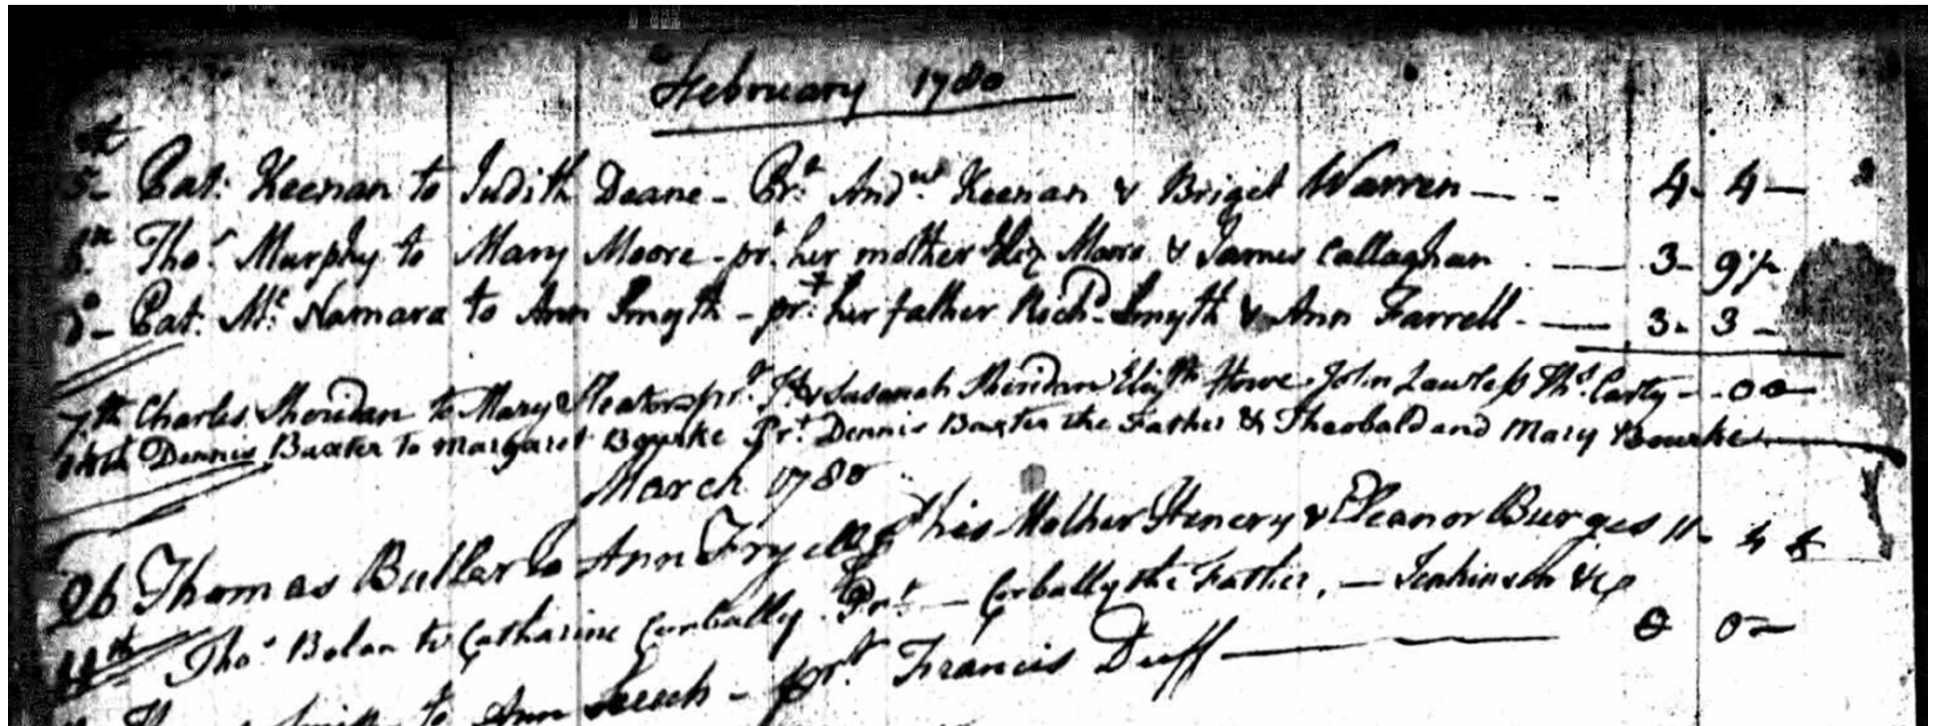 February 1780
5- Pat: Keenan to Judith Deane - Prt Andw Keenan & Briget Warren - - 4- 4-
Thos Murphy to Mary Moore - pr. her mother Eliz Moore & James Callaghan - 3- 9
Do- Pat. Mc Namara to Ann Smyth - prt her father Richd Smyth & Ann Farrell - 3- 3-
7th Charles Sheridan to Mary prt & Susanah Sheridan Elizth Howe John Lawless Ths Carty - 00
Dennis Baxter to Margaret Bourke Prt Dennis Baxter the Father & Theobald and Mary Bourke
March 1780
26 Thomas Butler to Ann his Mother Henery & Eleanor Burges 11- 4
14th Thos Bolan to Catharine Corbally. Prt - Corbally the Father, - Jenkinson &c 0 0-
to Ann Leech - prt Francis Duff